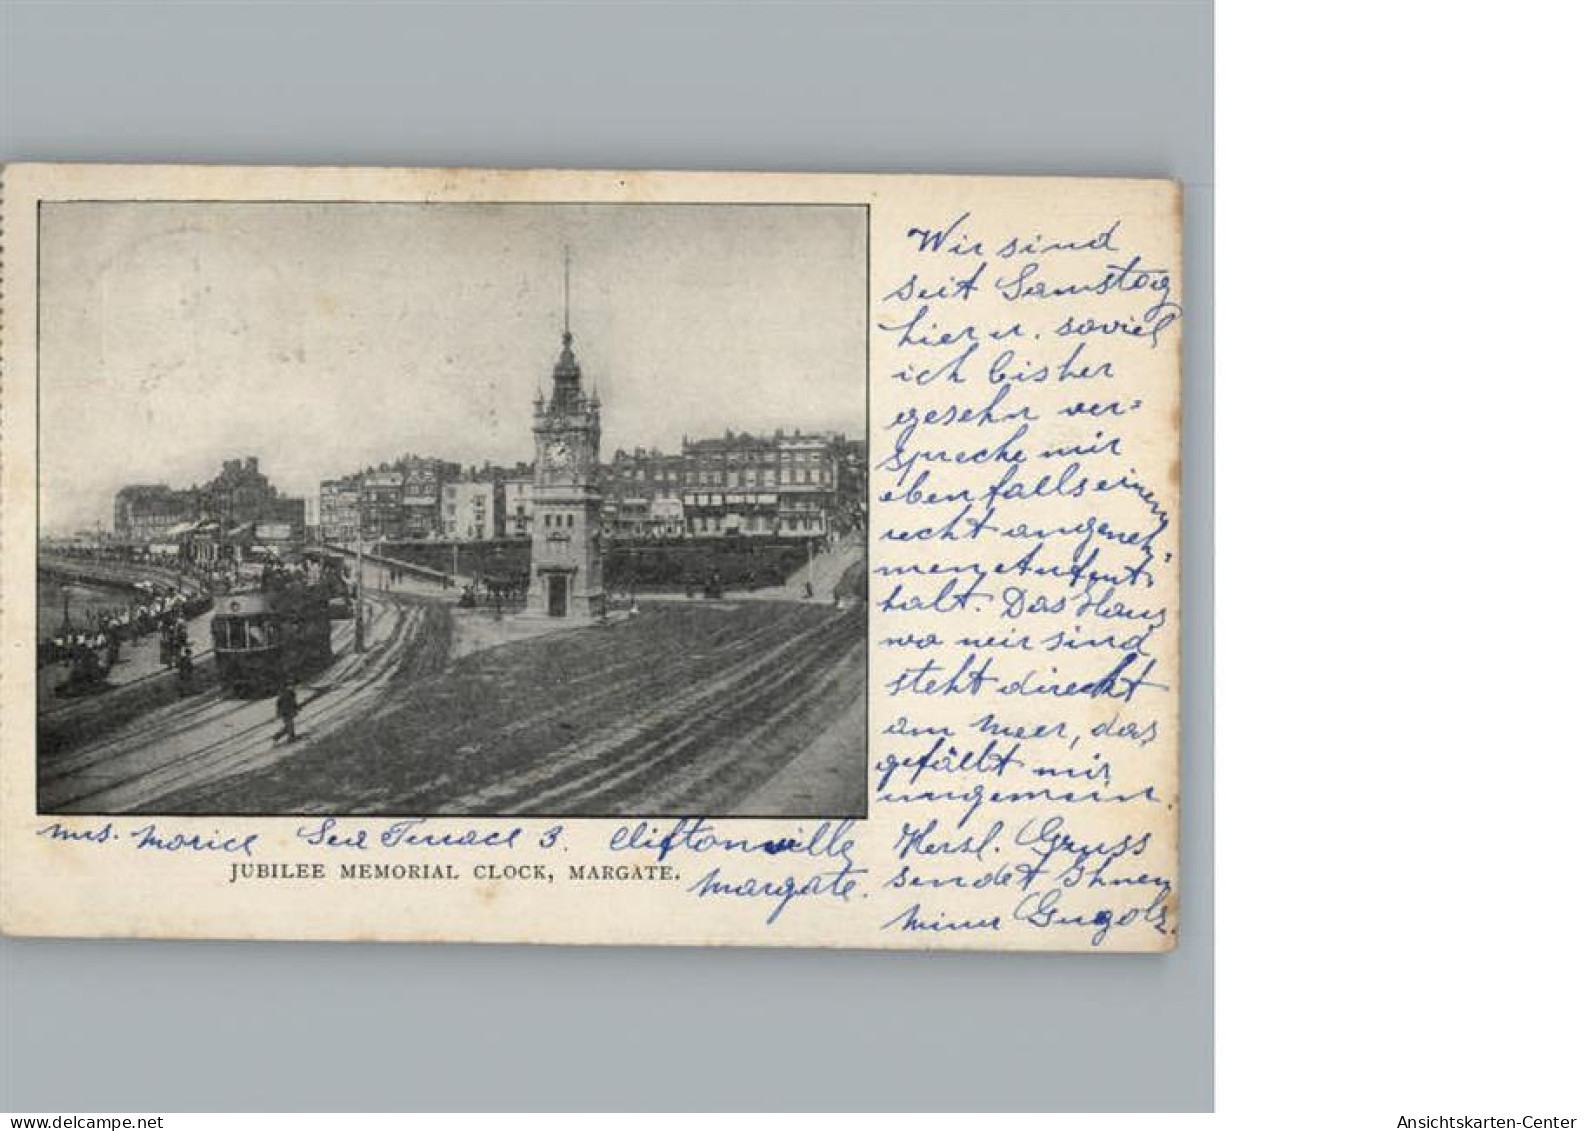 Wir sind
seit Samstag
hier u. soviel
ich bisher
gesehn ver=
spreche mir
ebenfalls einen
recht angeneh=
men Aufent=
halt. Das Haus
wo wir sind
steht direckt
am Meer, das
gefällt mir
ungemein.
Herzl. Gruss
sendet Ihnen
Minna
Mrs. Morice Sea Terrace 3. Cliftonville
Margate.
JUBILEE MEMORIAL CLOCK, MARGATE.
Ansichtskarten-Center.de
Ansichtskarten-Center